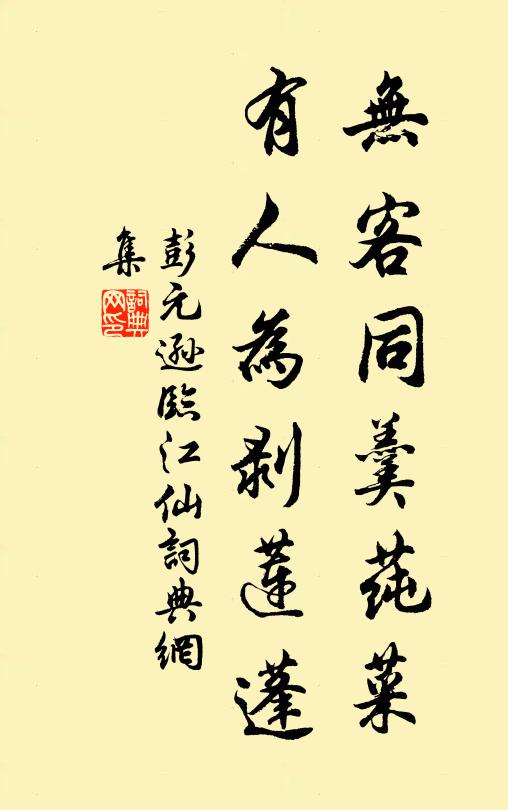 無客同羹蒓菜
有人為剝蓮蓬
彭元遜臨江仙詞典網
集
詞典
网印